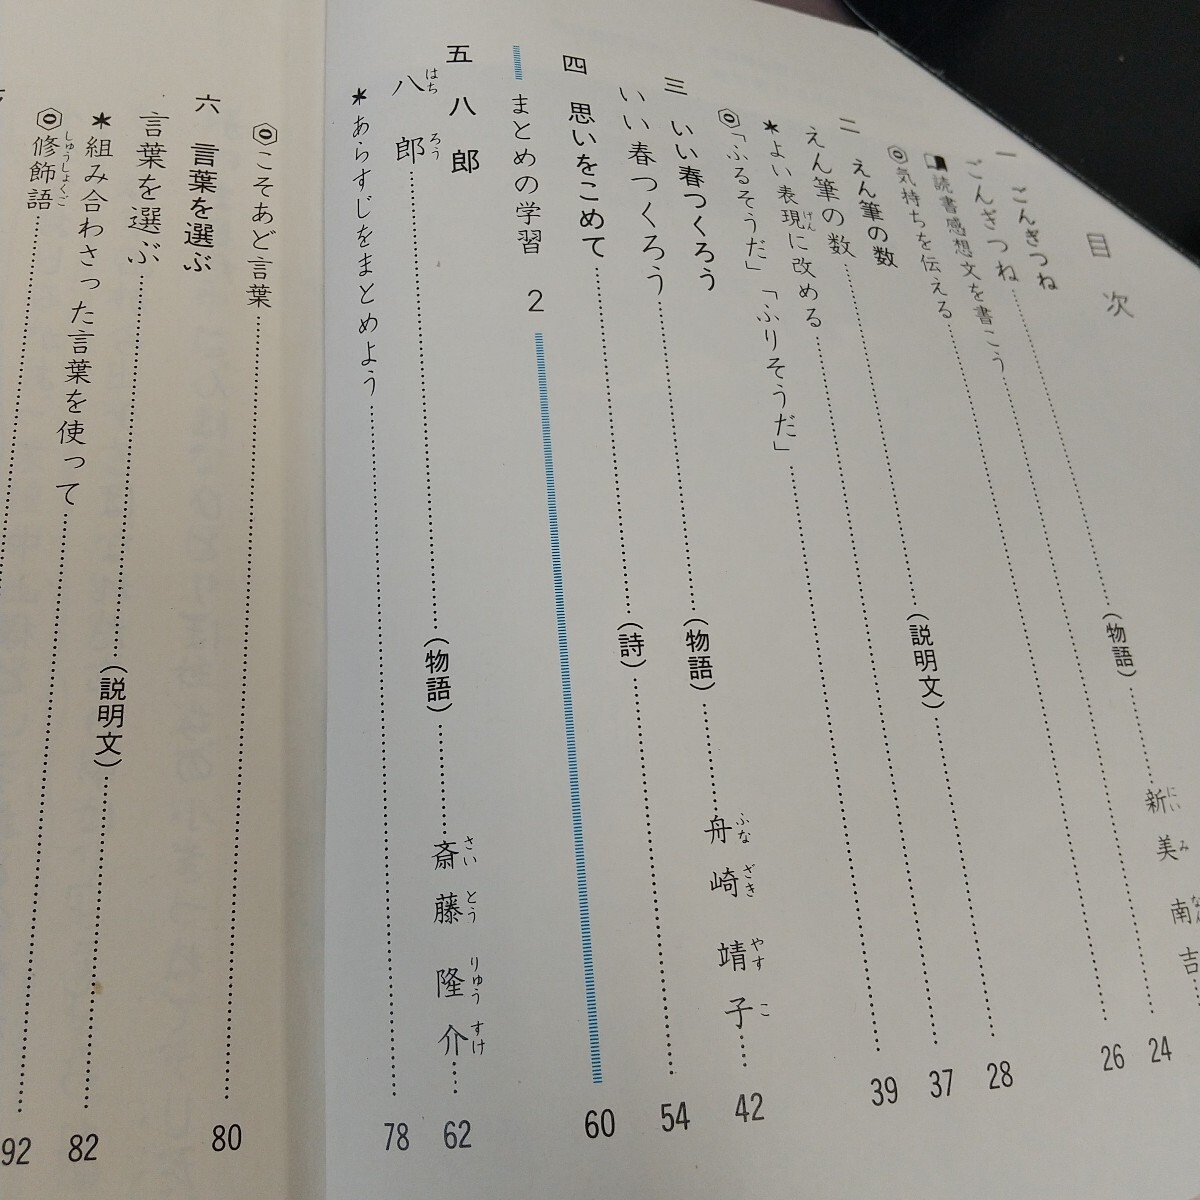 目次
一 ごんぎつね
ごんぎつね……(物語)……新美南吉
読書感想文を書こう……24
◎気持ちを伝える……26
二 えん筆の数
えん筆の数……(説明文)……28
*よい表現に改める……37
◎「ふるそうだ」「ふりそうだ」……39
三 いい春つくろう
いい春つくろう……(物語)……舟崎靖子……42
四 思いをこめて……(詩)……54
まとめの学習 2 60
五 八郎
八郎……(物語)……斎藤隆介……62
*あらすじをまとめよう……78
◎こそあど言葉……80
六 言葉を選ぶ
言葉を選ぶ……(説明文)……82
*組み合わさった言葉を使って……92
◎修飾語……